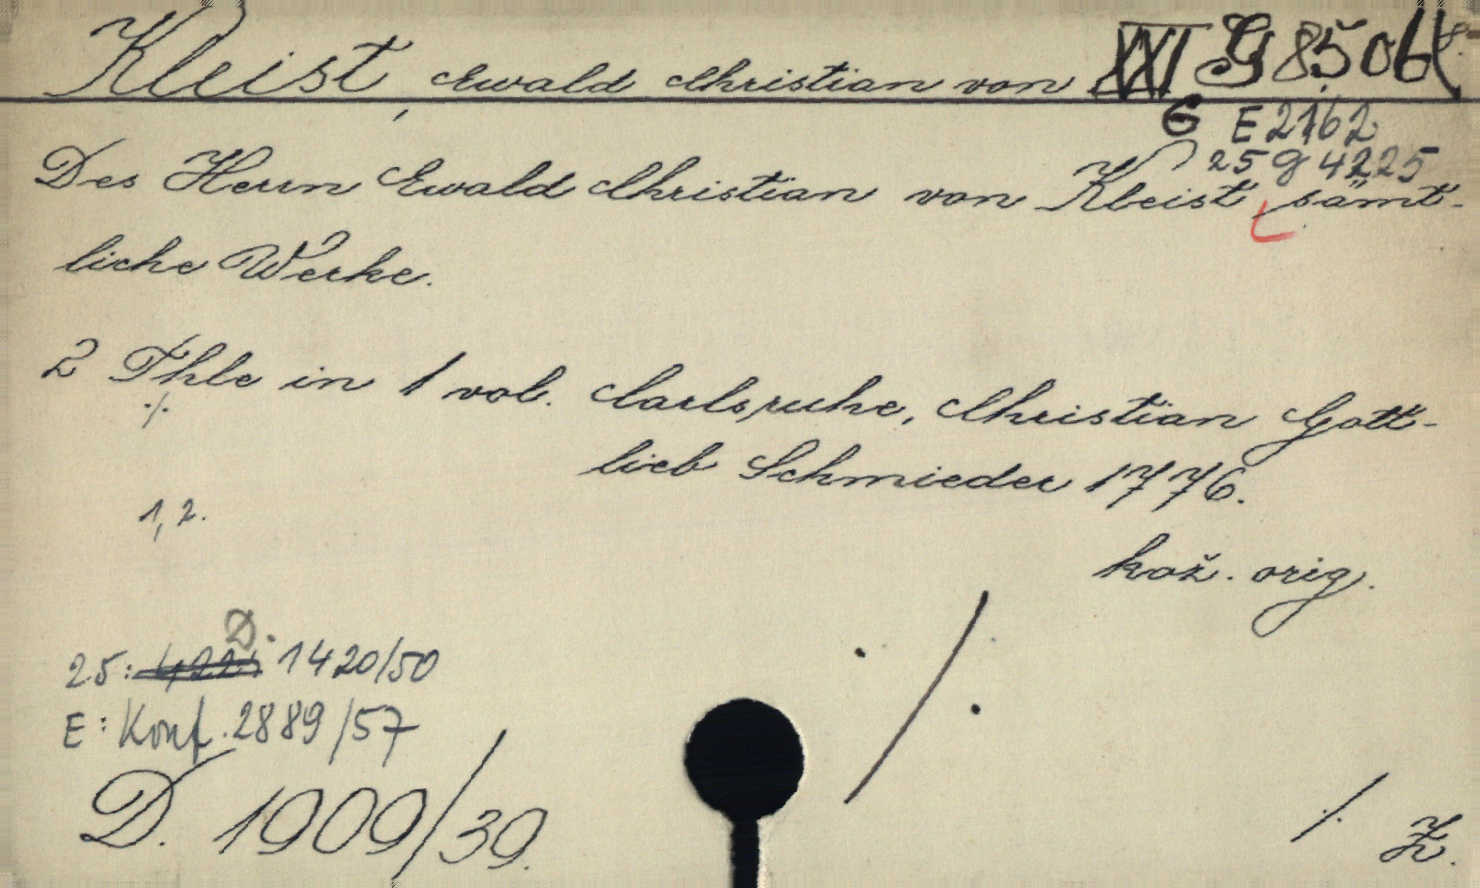 Kleist, Ewald Christian von XXI G 85
G E 2162
25 g 4225
Des Herrn Ewald Christian von Kleist sämt-
liche Werke.
2 Thle in 1 vol. Carlsruhe, Christian Gott-
·/.
lieb Schmieder 1776.
1, 2.
kož. orig.
D.
25: 1420/50
E: Konf. 2889/57
D. 1909/39.
·/.
·/. Z.